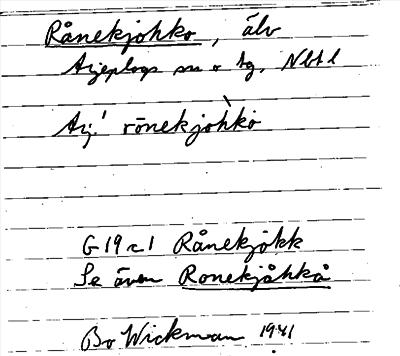 Rånekjohko, älv
Arjeplogs sn o tg, Nbtl
Arj! rōnekjòhko
G 19 c 1 Rånekjåkk
Se även Ronekjåhkå
Bo Wickman 1941